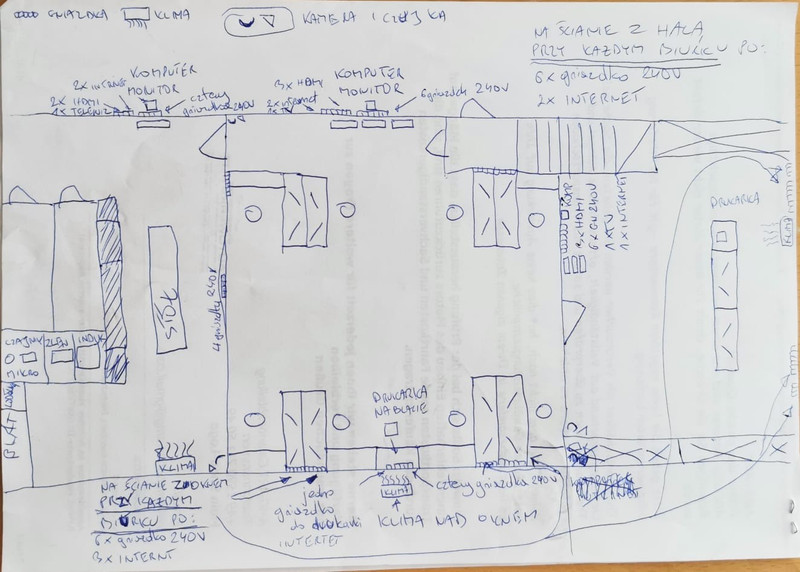 GNIAZDKA
KLIMA
KAMERA I CZUJKA
NA ŚCIANIE Z HALĄ
PRZY KAŻDYM BIURKU PO:
6x gniazdko 240V
2x INTERNET
KOMPUTER
MONITOR
2x internet
2x HDMI
1x TELEWIZ
cztery
gniazdka 240V
KOMPUTER
MONITOR
3x HDMI
2x internet
1x TV
6 gniazdek 240V
KOMP
3xHDMI
6xGN 240V
1 ATV
1xINTERNET
DRUKARKA
KLIMA
STÓŁ
4 gniazdka 240V
CZAJNIK
MIKRO
ZLEW
INDUK
BLAT
DRUKARKA
NA BLACIE
KLIMA
KLIMA
NA ŚCIANIE Z OKNEM
PRZY KAŻDYM
BIURKU PO:
6x gniazdko 240V
3x INTERNT
jedno
gniazdko
do drukarki
INTERTET
cztery gniazdka 240V
KLIMA NAD OKNEM